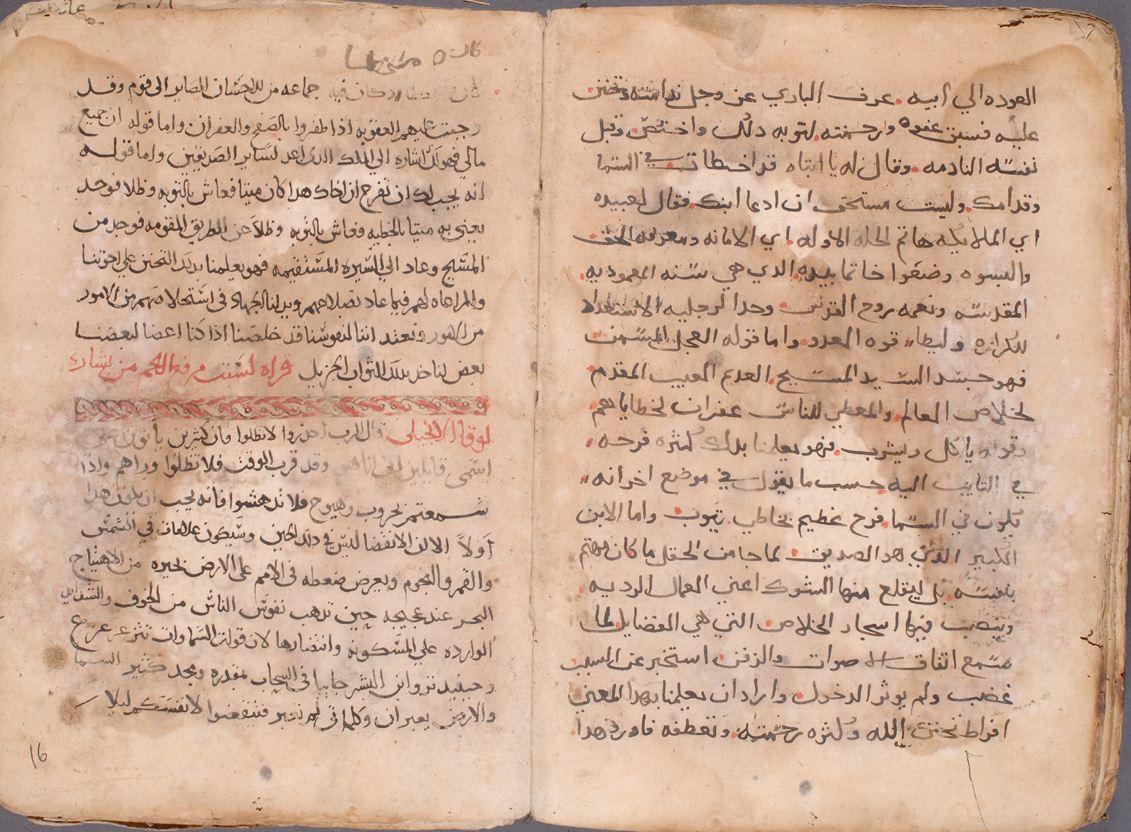 العوده الي ابيه. عرف الباري عز وجل ندامته فتحنن
عليه فسبق عفوه وارحمته لتوبه ذلك واختص وقبل
نفسه النادمه. وقال له يا ابتاه قد اخطات في السما
وقدامك. وليست مستحق ان ادعا ابنك فقال لعبيده
اي الملايكه هاتم الحله الاوله. اي الامانه ومعرفه الحق
والبسوه وضعوا خاتما بيده الدي هي سنه المعموديه
المقدسه ونعمه روح القدس وحدا لرجليه الاستعداد
للكرازه وليطا قوه العدو. واما قوله العجل المسمن
فهو جسد السيد المسيح. العديم العيب المقدم
لخلاص العالم. والمعطي للناس غفران لخطاياهم
وقوله ياكل ويشرب. فهو يعلمنا بدلك كثره فرحه
في التايب اليه حسب ما يقول في موضع اخر انه
يكون في السما. فرح عظيم بخاطي يتوب واما الابن
الكبير الدي هو الصديق لما جا من الحقل ما كان مهتم
بنفسه. بل ليقلع منها الشوك اعني العمال الرديه
وينصب فيها اسجار الخلاص التي هي الفضايل فلما
سمع اتفاق الاصوات والزفن استخبر عن السبب
غضب ولم يوثر الدخول. واراد ان يعلمنا بهدا المعني
افراط تحنن الله وكثره رحمته وتعطفه فاورد هدا
كان فيه جماعه من للاحسان الصاير الى قوم وقد
وجبت عليهم العقوبه اذا ظفروا بالصفح والغفران واما قوله ان جميع
مالي فهو لك اشاره الي الملك الدي اعد لساير الصديقين واما قوله
انه يجب لك ان تفرح ان اخاك هدا كان ميتا فعاش بالتوبه وظلا فوجد
يعني به ميتا بالخطيه فعاش بالتوبه وظلا عن الطريق المقومه فوجد من
المسيح وعاد الي السيره المستقيمه فهو يعلمنا بدلك التحنن علي اخوتنا
والمراعاه لهم فيما عاد بصلاحهم وبدلنا الجهد في استحلاصهم من الامور
ونعتد اننا لنفوسنا قد خلصنا اذا كنا اعضا لبعضنا
بعض لناخد بدلك التواب الجزيل قراه لسبت مرفع اللحم من بشاره
لوقا الانجيلي قال الرب احذروا لا تظلوا فان كثيرين ياتون
اسمي قايلين اني انا هو وقد قرب الوقت فلا تظلوا وراهم واذا
سمعتم بحروب وهيوج فلا تدهشوا فانه يجب ان يكون هدا
اولا الا ان الانقضا ليس في دلك الحين وسيكون علامات في الشمس
والقمر والنجوم ويعرض ضغطه في الامم على الارض بحيره من الاهتياج
البحر عند عجيجه حين تدهب نفوس الناس من الخوف
الوارده على المسكونه وانتضارها لان قوات السماوات تتزعزع
وحينيد ترو ابن البشر جاييا في السحاب بقدره ومجد كثير السما
والارض يعبران وكلماتي لم تعبر فتيقضوا لانفسكم ليلا
16